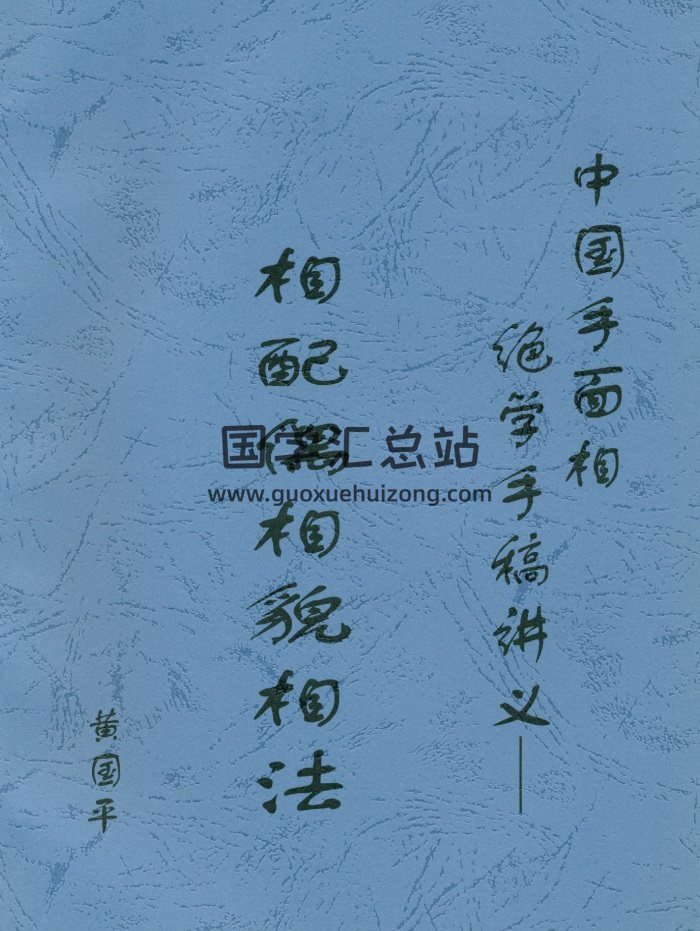 中国手面相
绝学手稿讲义——
相配偶相貌相法
黄国平
国学汇总站
www.guoxuehuizong.com